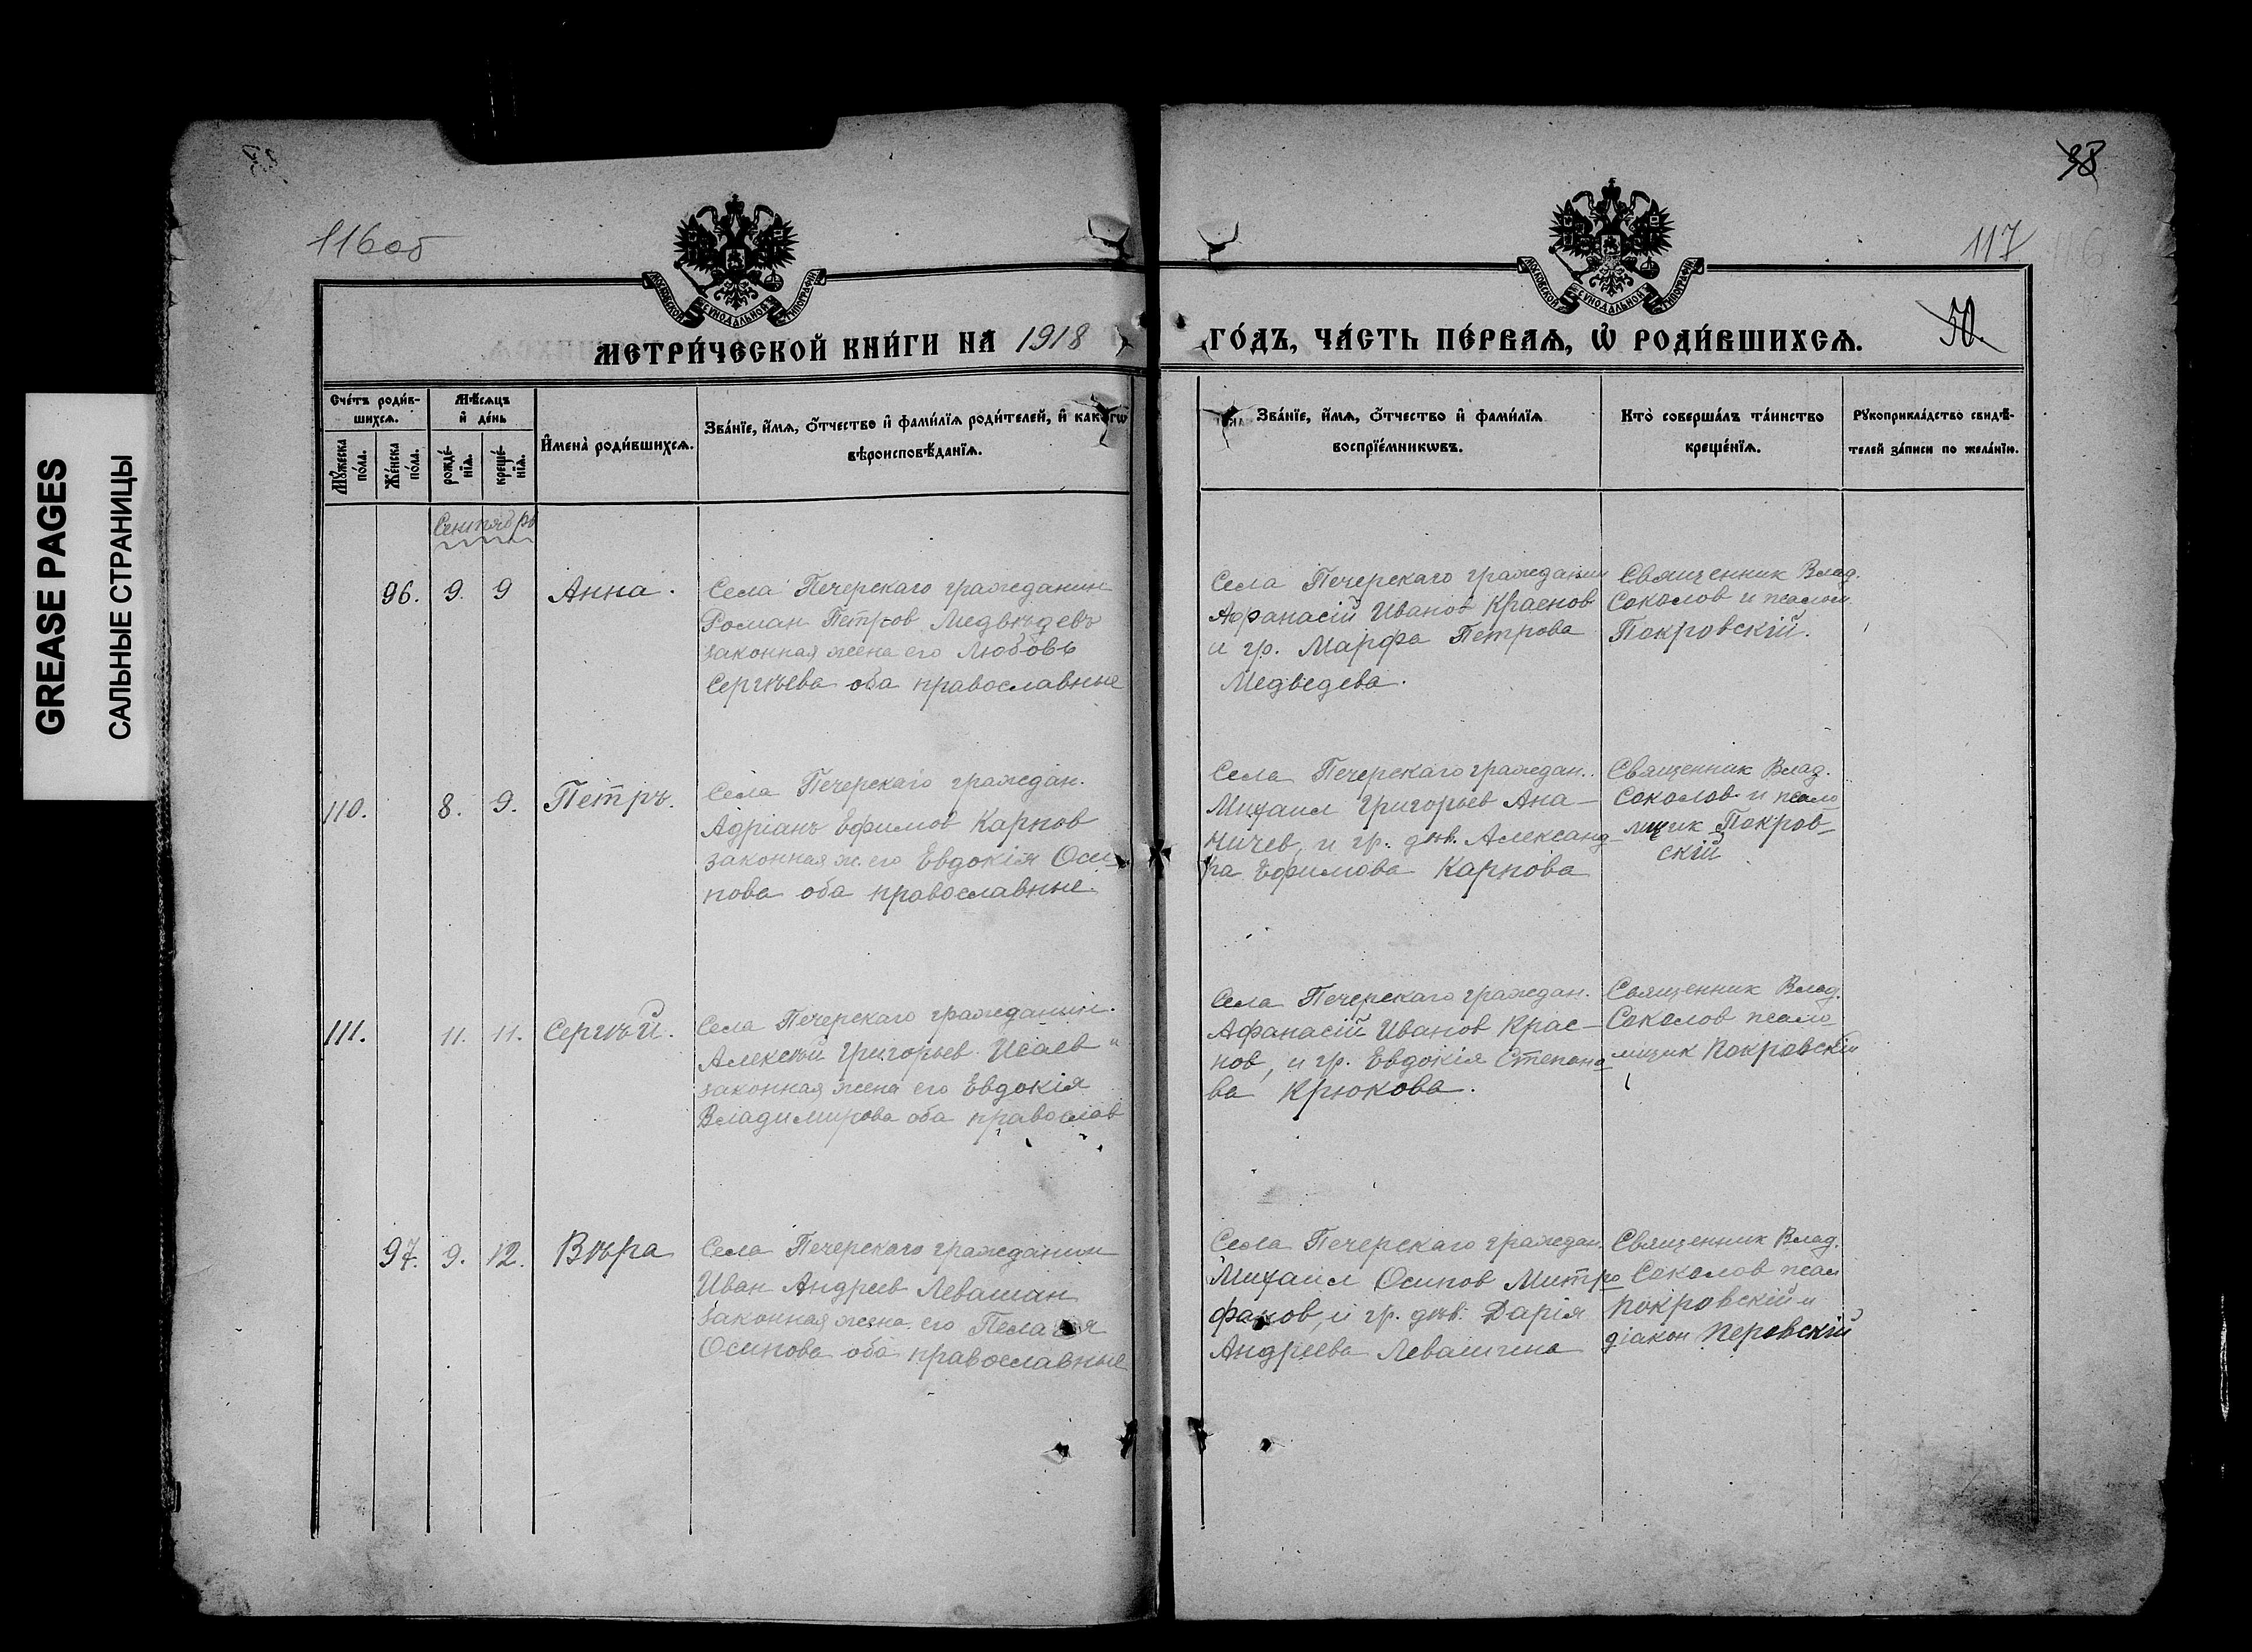 GREASE PAGES
САЛЬНЫЕ СТРАНИЦЫ
116об
38
117
50.
МОСКОВСКОЙ СѴНОДАЛЬНОЙ ТИПОГРАФІИ
МОСКОВСКОЙ СѴНОДАЛЬНОЙ ТИПОГРАФІИ
МЕТРИ́ЧЕСКОЙ КНИ́ГИ НА 1918
ГО́ДЪ, ЧА́СТЬ ПЕ́РВАѦ, Ѡ РОДИ́ВШИХСѦ.
Сче́тъ роди́в-
шихсѧ.
Мꙋ́жеска
по́ла.
Же́нска
по́ла.
Мѣ́сѧцъ
и҆ де́нь
рожде́-
нїѧ.
креще́-
нїѧ.
И҆мена̀ роди́вшихсѧ.
Зва́нїе, и҆́мѧ, ѻ҆́тчество и҆ фами́лїѧ роди́телей, и҆ како́гѡ
вѣроисповѣ́данїѧ.
Зва́нїе, и҆́мѧ, ѻ҆́тчество и҆ фами́лїѧ
воспрїе́мникѡвъ.
Кто̀ соверша́лъ та́инство
креще́нїѧ.
Рꙋкоприкла́дство свидѣ́-
телей за́писи по жела́нїю.
Сентябрь
96. 9. 9 Анна.
Села Печерскаго гражданин
Роман Петров Медвѣдевъ
законная жена его Любовь
Сергѣева оба православные
Села Печерскаго гражданин
Афанасій Иванов Краснов
и гр. Марфа Петрова
Медведева.
Священник Влад.
Соколов и псалом.
Покровскій.
110. 8. 9. Петръ.
Села Печерскаго граждан.
Адріанъ Ефимов Карпов
законная ж. его Евдокія Оси-
пова оба православные.
Села Печерскаго граждан.
Михаил Григорьев Ана-
ничев, и гр. дѣв. Александ-
ра Ефимова Карпова
Священник Влад.
Соколов и псало
мщик Покров-
скій
111. 11. 11. Сергѣй.
Села Печерскаго гражданин.
Алексѣй Григорьев Исаев и
законная жена его Евдокія
Владимирова оба православ
Села Печерскаго граждан.
Афанасій Иванов Крас-
нов, и гр. Евдокія Степано
ва Крюкова.
Священник Влад.
Соколов псало
мщик Покровскій
97. 9. 12. Вѣра
Села Печерскаго гражданин
Иван Андреев Левашин
законная жена его Пелагія
Осипова оба православные
Села Печерскаго граждан.
Михаил Осипов Митро
фанов, и гр. дѣв. Дарія
Андреева Левашина
Священник Влад.
Соколов псал
Покровскій и
діакон Перовскій